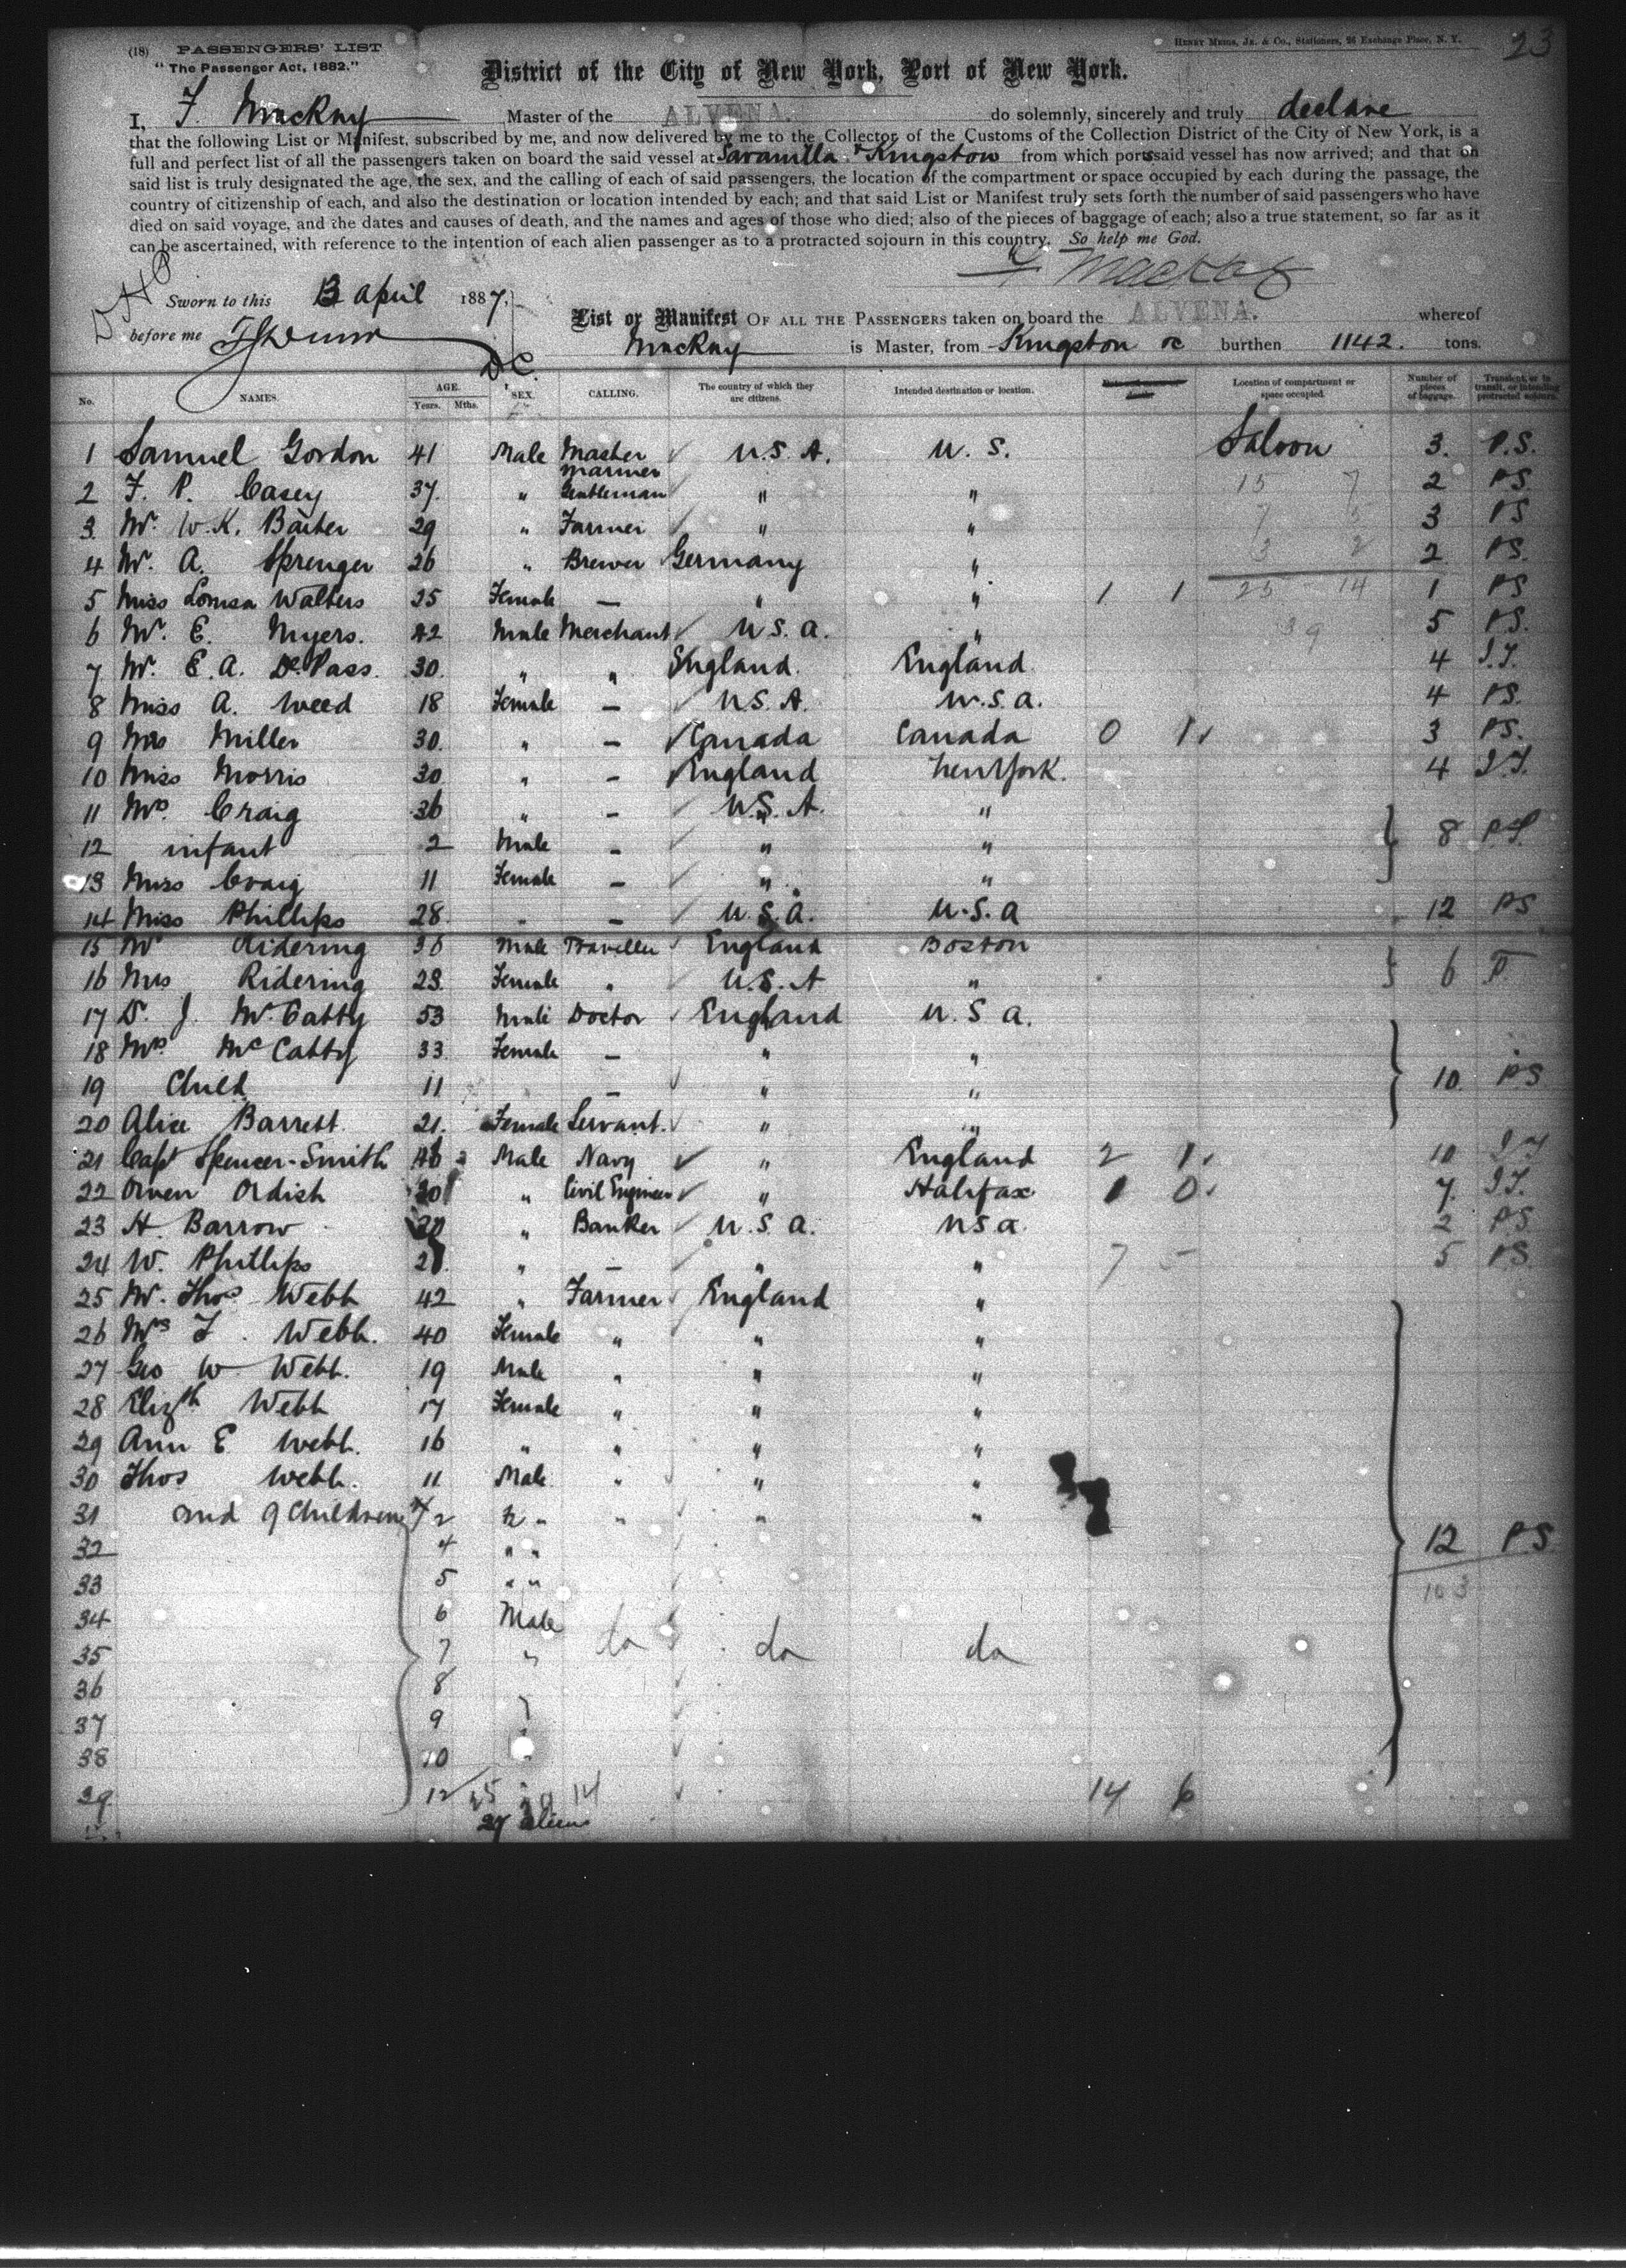 (18) PASSENGERS' LIST
"The Passenger Act, 1882."
HENRY MEIGS, JR. & CO., Stationers, 26 Exchange Place, N. Y.
23
District of the City of New York, Port of New York.
I, F. Mackay Master of the ALVENA. do solemnly, sincerely and truly declare
that the following List or Manifest, subscribed by me, and now delivered by me to the Collector of the Customs of the Collection District of the City of New York, is a
full and perfect list of all the passengers taken on board the said vessel at Savanilla & Kingston from which ports said vessel has now arrived; and that on
said list is truly designated the age, the sex, and the calling of each of said passengers, the location of the compartment or space occupied by each during the passage, the
country of citizenship of each, and also the destination or location intended by each; and that said List or Manifest truly sets forth the number of said passengers who have
died on said voyage, and the dates and causes of death, and the names and ages of those who died; also of the pieces of baggage of each; also a true statement, so far as it
can be ascertained, with reference to the intention of each alien passenger as to a protracted sojourn in this country. So help me God.
F Mackay
Sworn to this 13 April 1887,
before me
List or Manifest OF ALL THE PASSENGERS taken on board the ALVENA. whereof
Mackay is Master, from Kingston &c burthen 1142. tons.
No. NAMES. AGE. Years. Mths. SEX. CALLING. The country of which they are citizens. Intended destination or location. Location of compartment or space occupied. Number of pieces of baggage. Transient, or in transit, or intending protracted sojourn.
1 Samuel Gordon 41 Male Master mariner U.S.A. U.S. Saloon 3. P.S.
2 F. P. Casey 37. " Gentleman " " 15 7 2 PS
3 Mr. W. K. Barber 29 " Farmer " " 7 5 3 PS
4 Mr. A. Sprenger 26 " Brewer Germany " 3 2 2 PS.
5 Miss Louisa Walters 25 Female — " " 1 1 25 14 1 PS
6 Mr. E. Myers. 42 Male Merchant U.S.a. " 39 5 PS.
7 Mr. E. A. DePass. 30. " " England. England 4 I.T.
8 Miss A. Weed 18 Female — U.S.A. U.S.a. 4 PS.
9 Mrs Miller 30. " — Canada Canada 0 1 3 PS.
10 Miss Morris 30 " — England New York. 4 I.T.
11 Mrs. Craig 36 " — U.S.A. "
12 infant 2 Male — " " 8 P.S.
13 Miss Craig 11 Female — " "
14 Miss Phillips 28 " — U.S.a. U.S.a 12 PS
15 Mr Ridering 36 Male Traveller England Boston
16 Mrs Ridering 23. Female " U.S.A " 6 T
17 Dr. J. McCatty 53 Male Doctor England U.S a.
18 Mrs. McCatty 33 Female — " "
19 Child 11 — " " 10 PS
20 Alice Barrett 21. Female Servant. " "
21 Capt Spencer-Smith 46 Male Navy " England 2 1 10 I.T
22 Owen Ordish 30 " Civil Engineer " Halifax 1 0 7. I.T.
23 H. Barrow 20 " Banker U.S.a. U.S a. 2 PS
24 W. Phillips " — " " 7 5 5 PS.
25 Mr. Thos Webb 42 " Farmer England "
26 Mrs T. Webb. 40 Female " " "
27 Geo W Webb. 19 Male " " "
28 Elizth Webb 17 Female " " "
29 Ann E Webb. 16 " " " "
30 Thos Webb. 11 Male " " "
31 and 9 Children 2 " " " "
32 4 " " 12 P.S.
33 5 " " 103
34 6 Male
35 7 " do do do
36 8
37 9
38 10 "
39 12 25 14 14 6
27 aliens